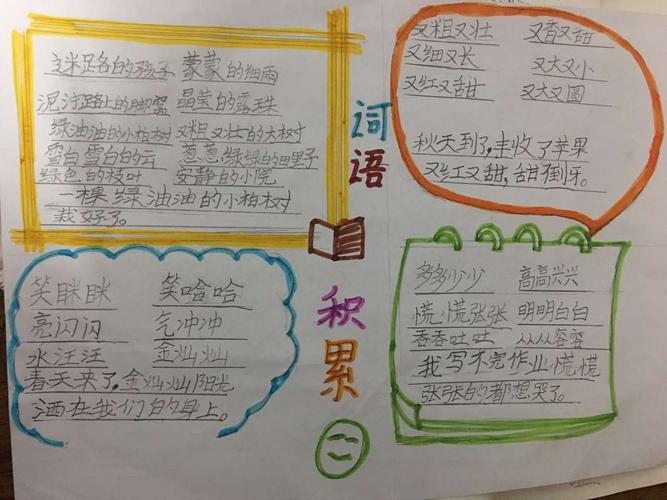 迷路的孩子 蒙蒙的细雨
泥泞路上的脚窝 晶莹的露珠
绿油油的小柏树 又粗又壮的大树
雪白雪白的云 葱葱绿绿的田野子
绿色的枝叶 安静的小院
一棵绿油油的小柏树
栽好了。
词语
积累
(二)
又粗又壮 又香又甜
又细又长 又大又小
又红又甜 又大又圆
秋天到了,丰收了苹果
又红又甜,甜倒牙。
笑眯眯 笑哈哈
亮闪闪 气冲冲
水汪汪 金灿灿
春天来了,金灿灿阳光
洒在我们的身上。
多多少少 高高兴兴
慌慌张张 明明白白
香香吐吐 从从容容
我写不完作业慌慌
张张的都想哭了。